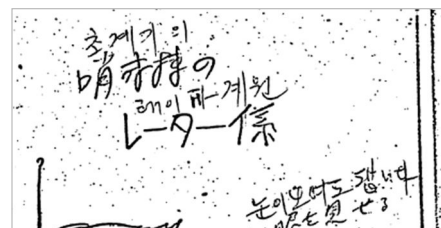 초계기의
哨戒機の
레이다-계원
レーター係
눈이 보여도 됩니다
眼を見せる